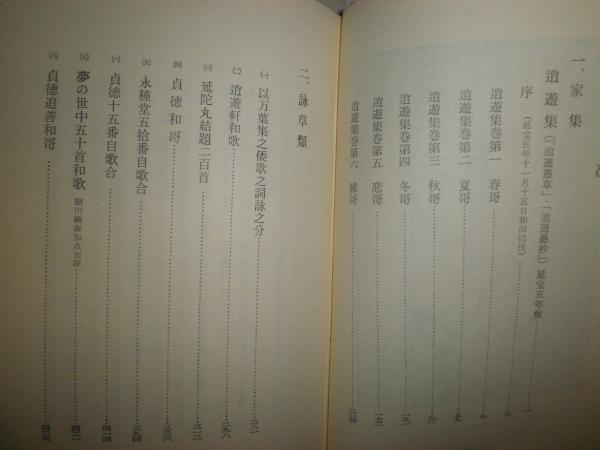 次
一、家集
逍遊集（『逍遊愚草』・『逍遊愚抄』）延宝五年板
序（延宝五年十一月十五日和田以悦）
逍遊集巻第一 春哥
逍遊集巻第二 夏哥
逍遊集巻第三 秋哥
逍遊集巻第四 冬哥
逍遊集巻第五 恋哥
逍遊集巻第六 雑哥
二、詠草類
㈠ 以万葉集之倭歌之詞詠之分
㈡ 逍遊軒和歌
㈢ 延陀丸結題二百首
㈣ 貞徳和哥
㈤ 永種堂五拾番自歌合
㈥ 貞徳十五番自歌合
㈦ 夢の世中五十首和歌 細川幽斎加点加評
㈧ 貞徳追善和哥